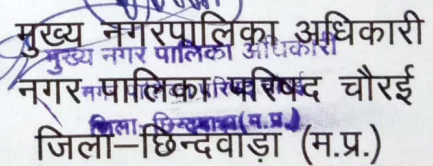 मुख्य नगरपालिका अधिकारी
मुख्य नगर पालिका अधिकारी
नगर पालिका परिषद चौरई
जिला-छिन्दवाड़ा (म.प्र.)
जिला-छिन्दवाड़ा (म.प्र.)